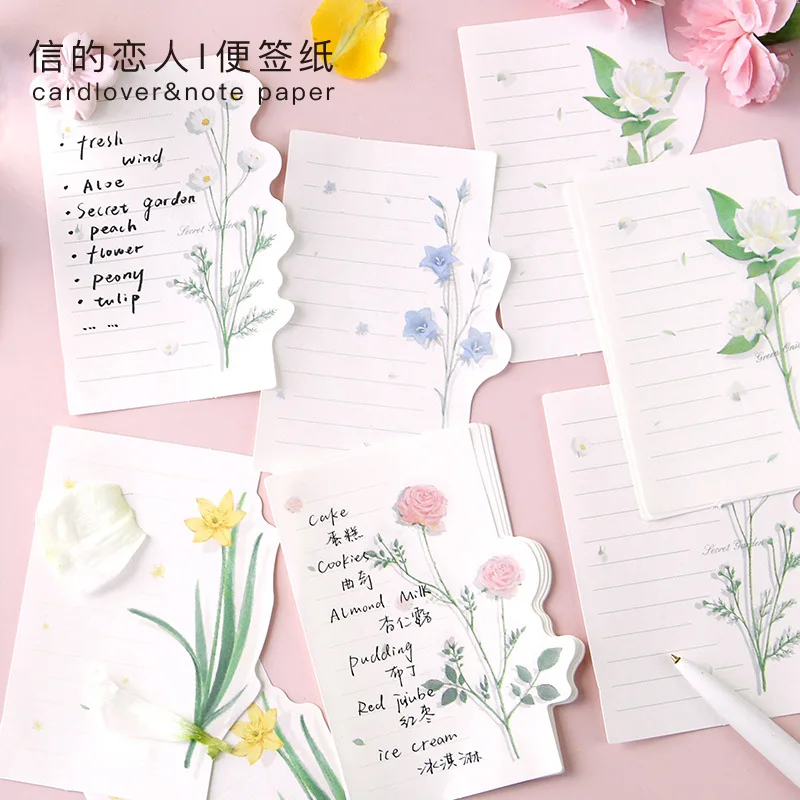 信的恋人|便签纸
cardlover&note paper
• fresh
wind
• Aloe
• Secret garden
• peach
• flower
• peony
• tulip
... ...
Secret Garden
Secret Garden
Cake
蛋糕
Cookies
曲奇
Almond Milk
杏仁露
pudding
布丁
Red jujube
红枣
ice cream
冰淇淋